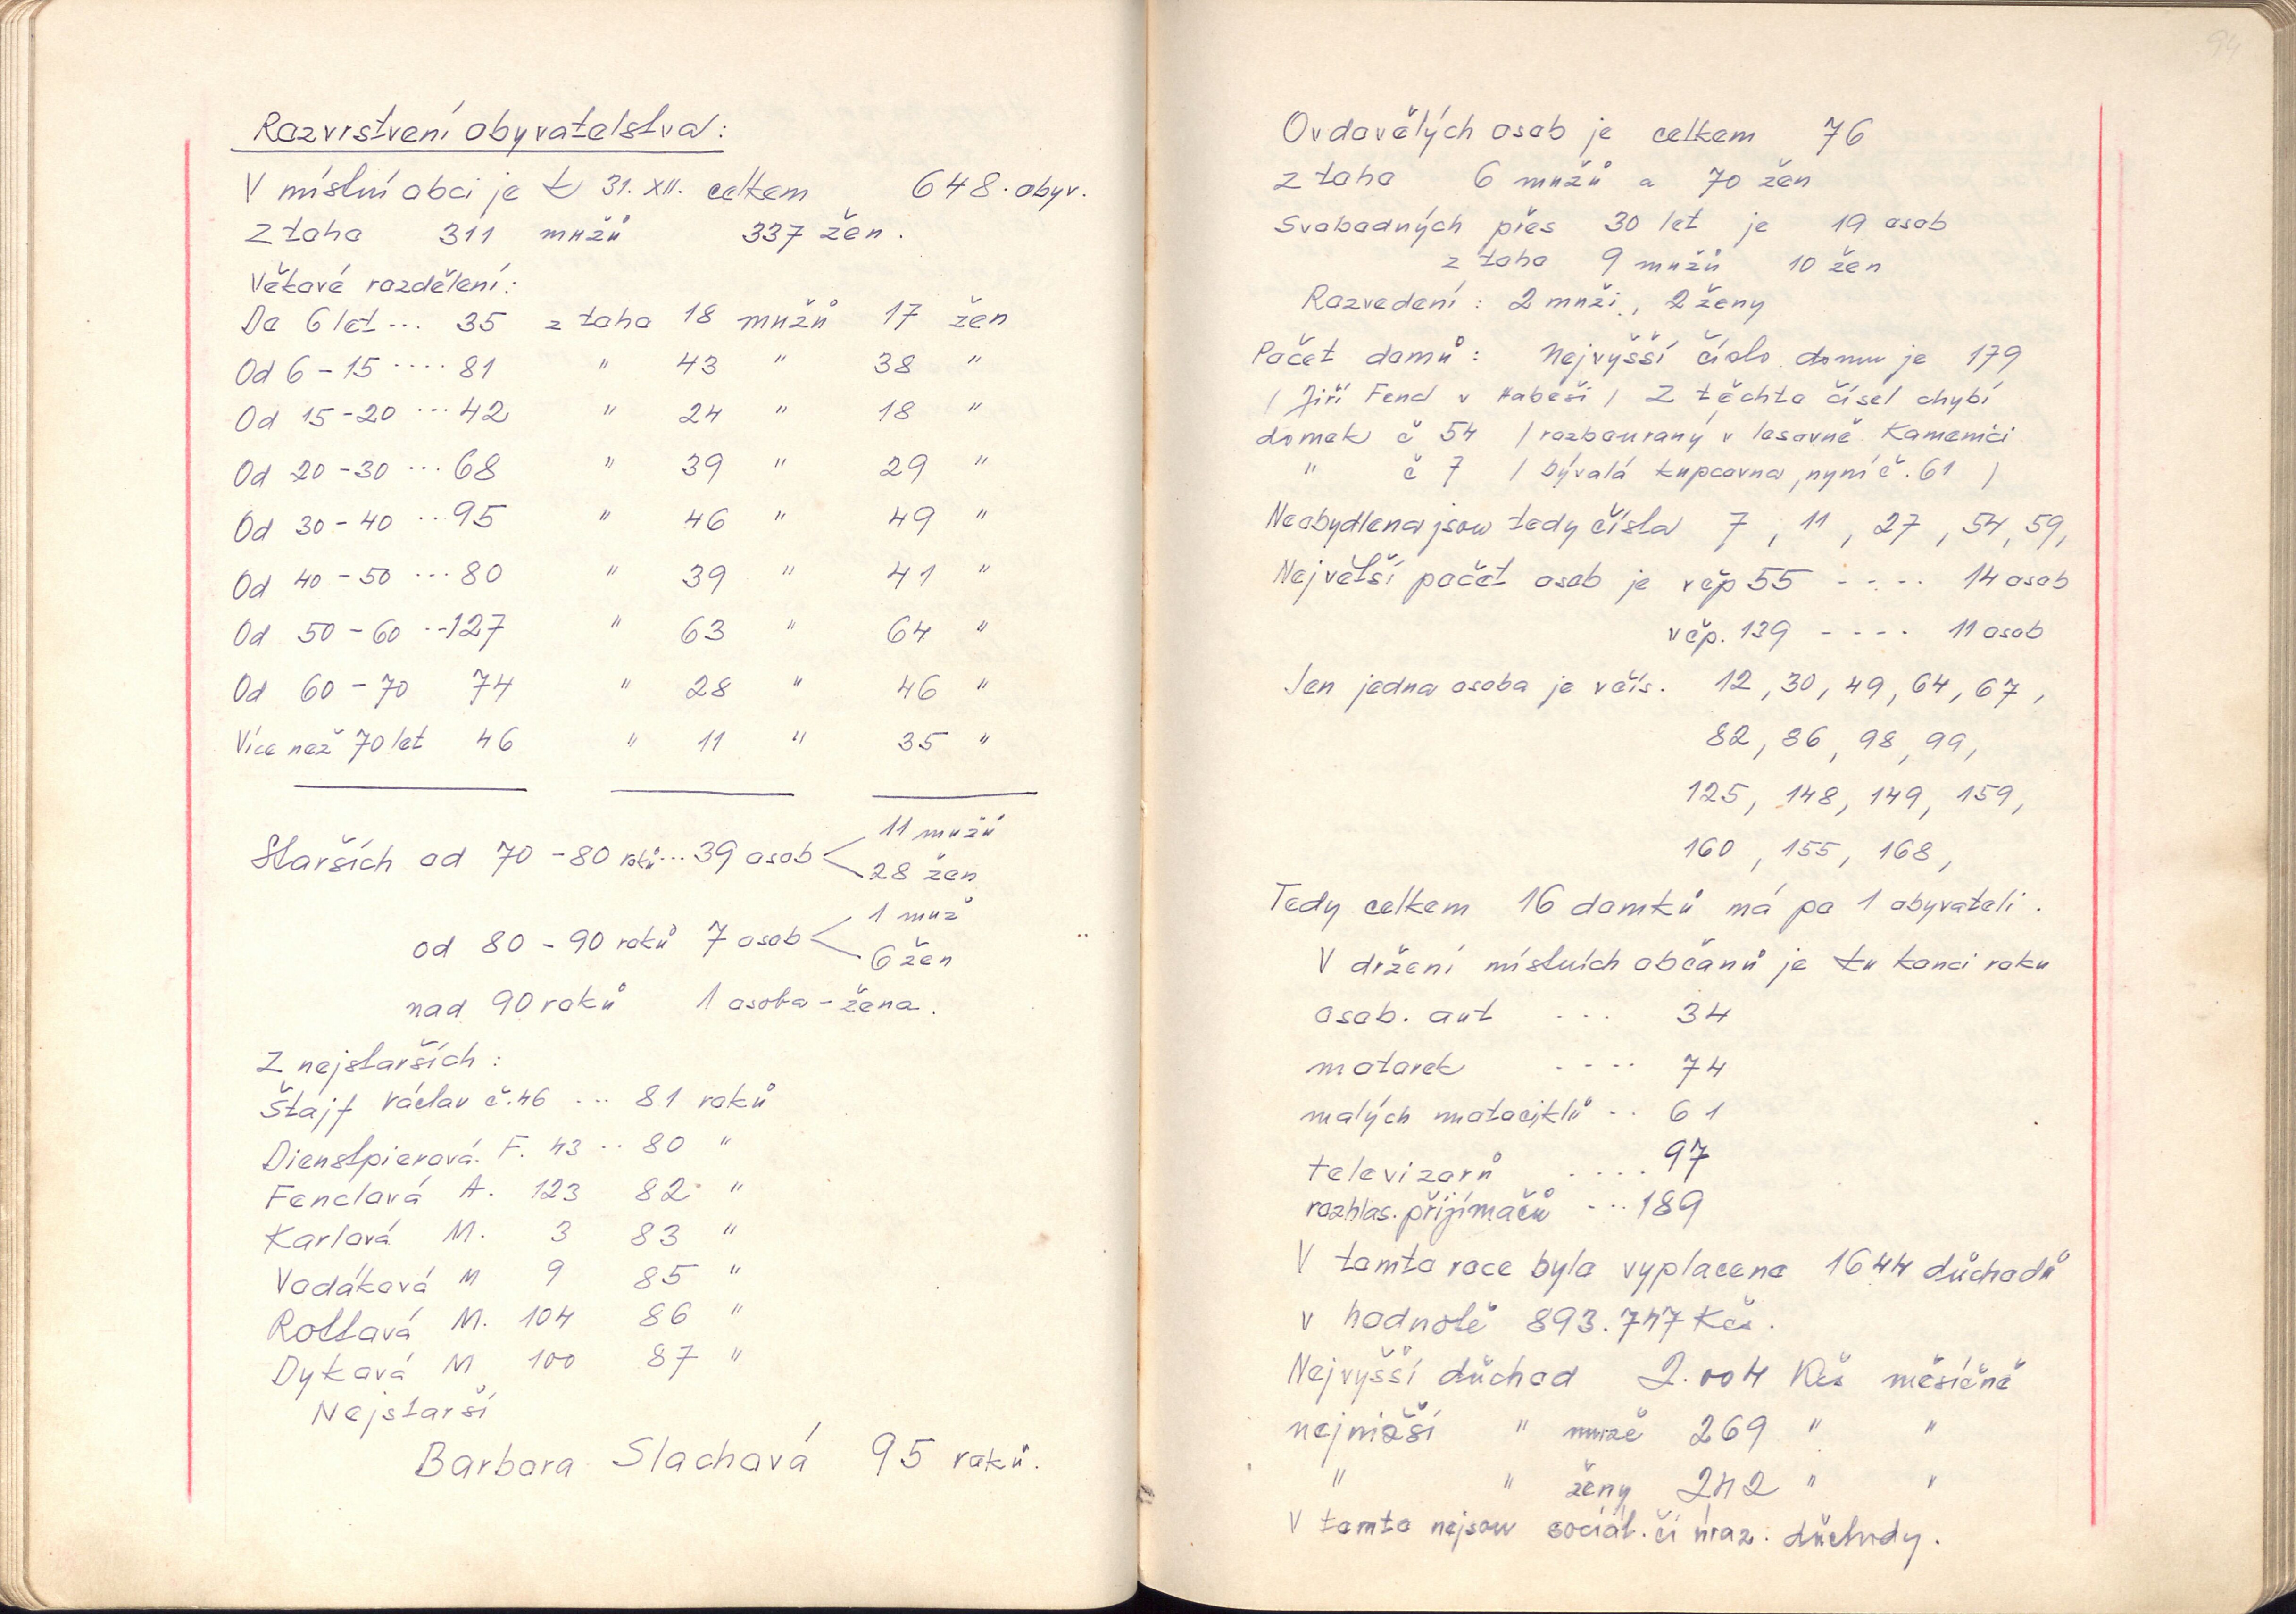 Rozvrstvení obyvatelstva:
V místní obci je k 31. XII. celkem 648. obyv.
z toho 311 mužů 337 žen.
Věkové rozdělení:
Do 6 let ... 35 z toho 18 mužů 17 žen
Od 6 - 15 .... 81 " 43 " 38 "
Od 15 - 20 ... 42 " 24 " 18 "
Od 20 - 30 ... 68 " 39 " 29 "
Od 30 - 40 .. 95 " 46 " 49 "
Od 40 - 50 ... 80 " 39 " 41 "
Od 50 - 60 .. 127 " 63 " 64 "
Od 60 - 70 74 " 28 " 46 "
Více než 70 let 46 " 11 " 35 "
Starších od 70 - 80 roků ... 39 osob 11 mužů
28 žen
od 80 - 90 roků 7 osob 1 muž
6 žen
nad 90 roků 1 osoba - žena.
Z nejstarších:
Štajf Václav č. 46 ... 81 roků
Dienstpierová F. 43 .. 80 "
Fenclová A. 123 82 "
Karlová M. 3 83 "
Vodáková M 9 85 "
Rottová M. 104 86 "
Dyková M 100 87 "
Nejstarší
Barbora Slachová 95 roků.
94
Ovdovělých osob je celkem 76
z toho 6 mužů a 70 žen
Svobodných přes 30 let je 19 osob
z toho 9 mužů 10 žen
Rozvedení: 2 muži, 2 ženy
Počet domů: Nejvyšší číslo domu je 179
/ Jiří Fencl v Habeši / Z těchto čísel chybí
domek č 54 / rozbouraný v lesovně Kamenici
" č 7 / bývalá kupcovna, nyní č. 61 /
Neobydlena jsou tedy čísla 7, 11, 27, 54, 59,
Největší počet osob je v čp 55 - - - - 14 osob
v čp. 139 - - - - 11 osob
Jen jedna osoba je v čís. 12, 30, 49, 64, 67,
82, 86, 98, 99,
125, 148, 149, 159,
160, 155, 168,
Tedy celkem 16 domků má po 1 obyvateli.
V držení místních občanů je ku konci roku
osob. aut ... 34
motorek .... 74
malých motocyklů .. 61
televizorů .... 97
rozhlas. přijímačů ... 189
V tomto roce bylo vyplaceno 1644 důchodů
v hodnotě 893.747 Kčs.
Nejvyšší důchod 2.004 Kčs měsíčně
nejnižší " muže 269 " "
" " ženy 242 " "
V tomto nejsou sociál. či úraz. důchody.